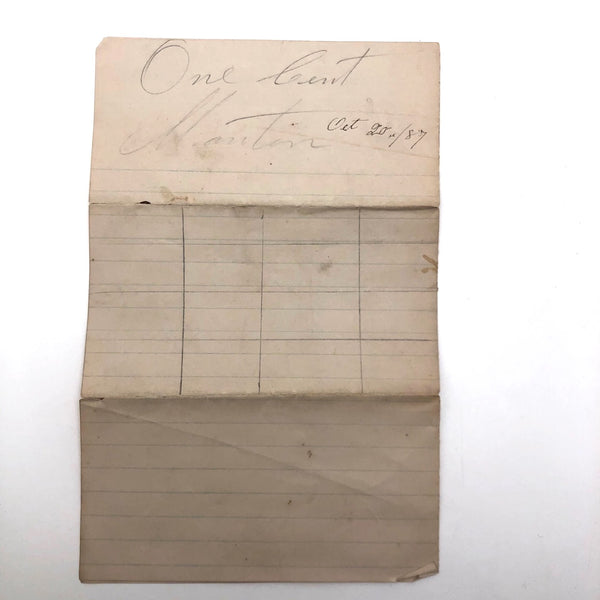 One Cent
Manton Oct 20./87